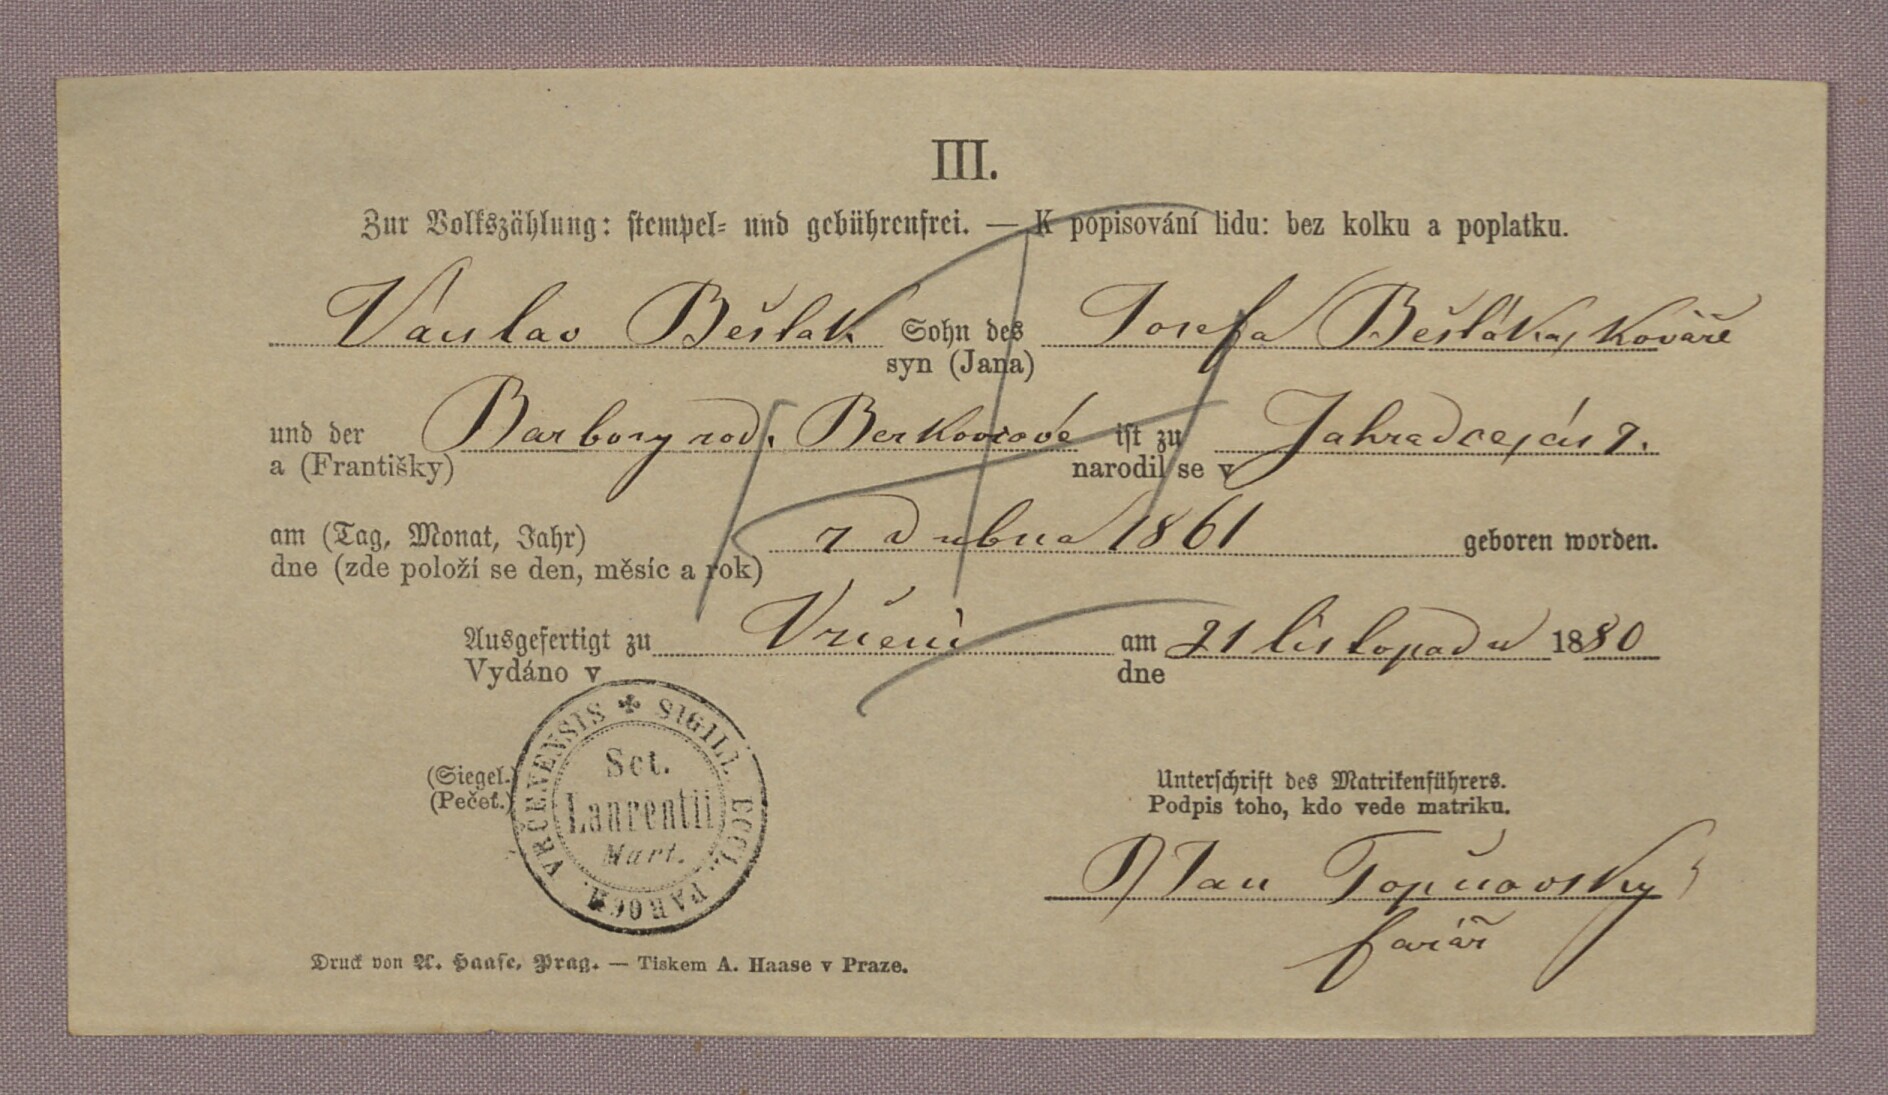 III.
Zur Volkszählung: stempel- und gebührenfrei. — K popisování lidu: bez kolku a poplatku.
Václav Bešták Sohn des Josefa Beštáka, kováře
syn (Jana)
und der Barbory rod. Berkovcové ist zu Zahradce, čís 7.
a (Františky) narodil se v
am (Tag, Monat, Jahr) 7 dubna 1861 geboren worden.
dne (zde položí se den, měsíc a rok)
Ausgefertigt zu Vrčeni am 21 listopadu 1880
Vydáno v dne
(Siegel.)
(Pečeť.)
SIGILL. ECCL. PAROCH. VRČENENSIS
Sct.
Laurentii
Mart.
Unterschrift des Matrikenführers.
Podpis toho, kdo vede matriku.
Jan
farář
Druck von A. Haase, Prag. — Tiskem A. Haase v Praze.